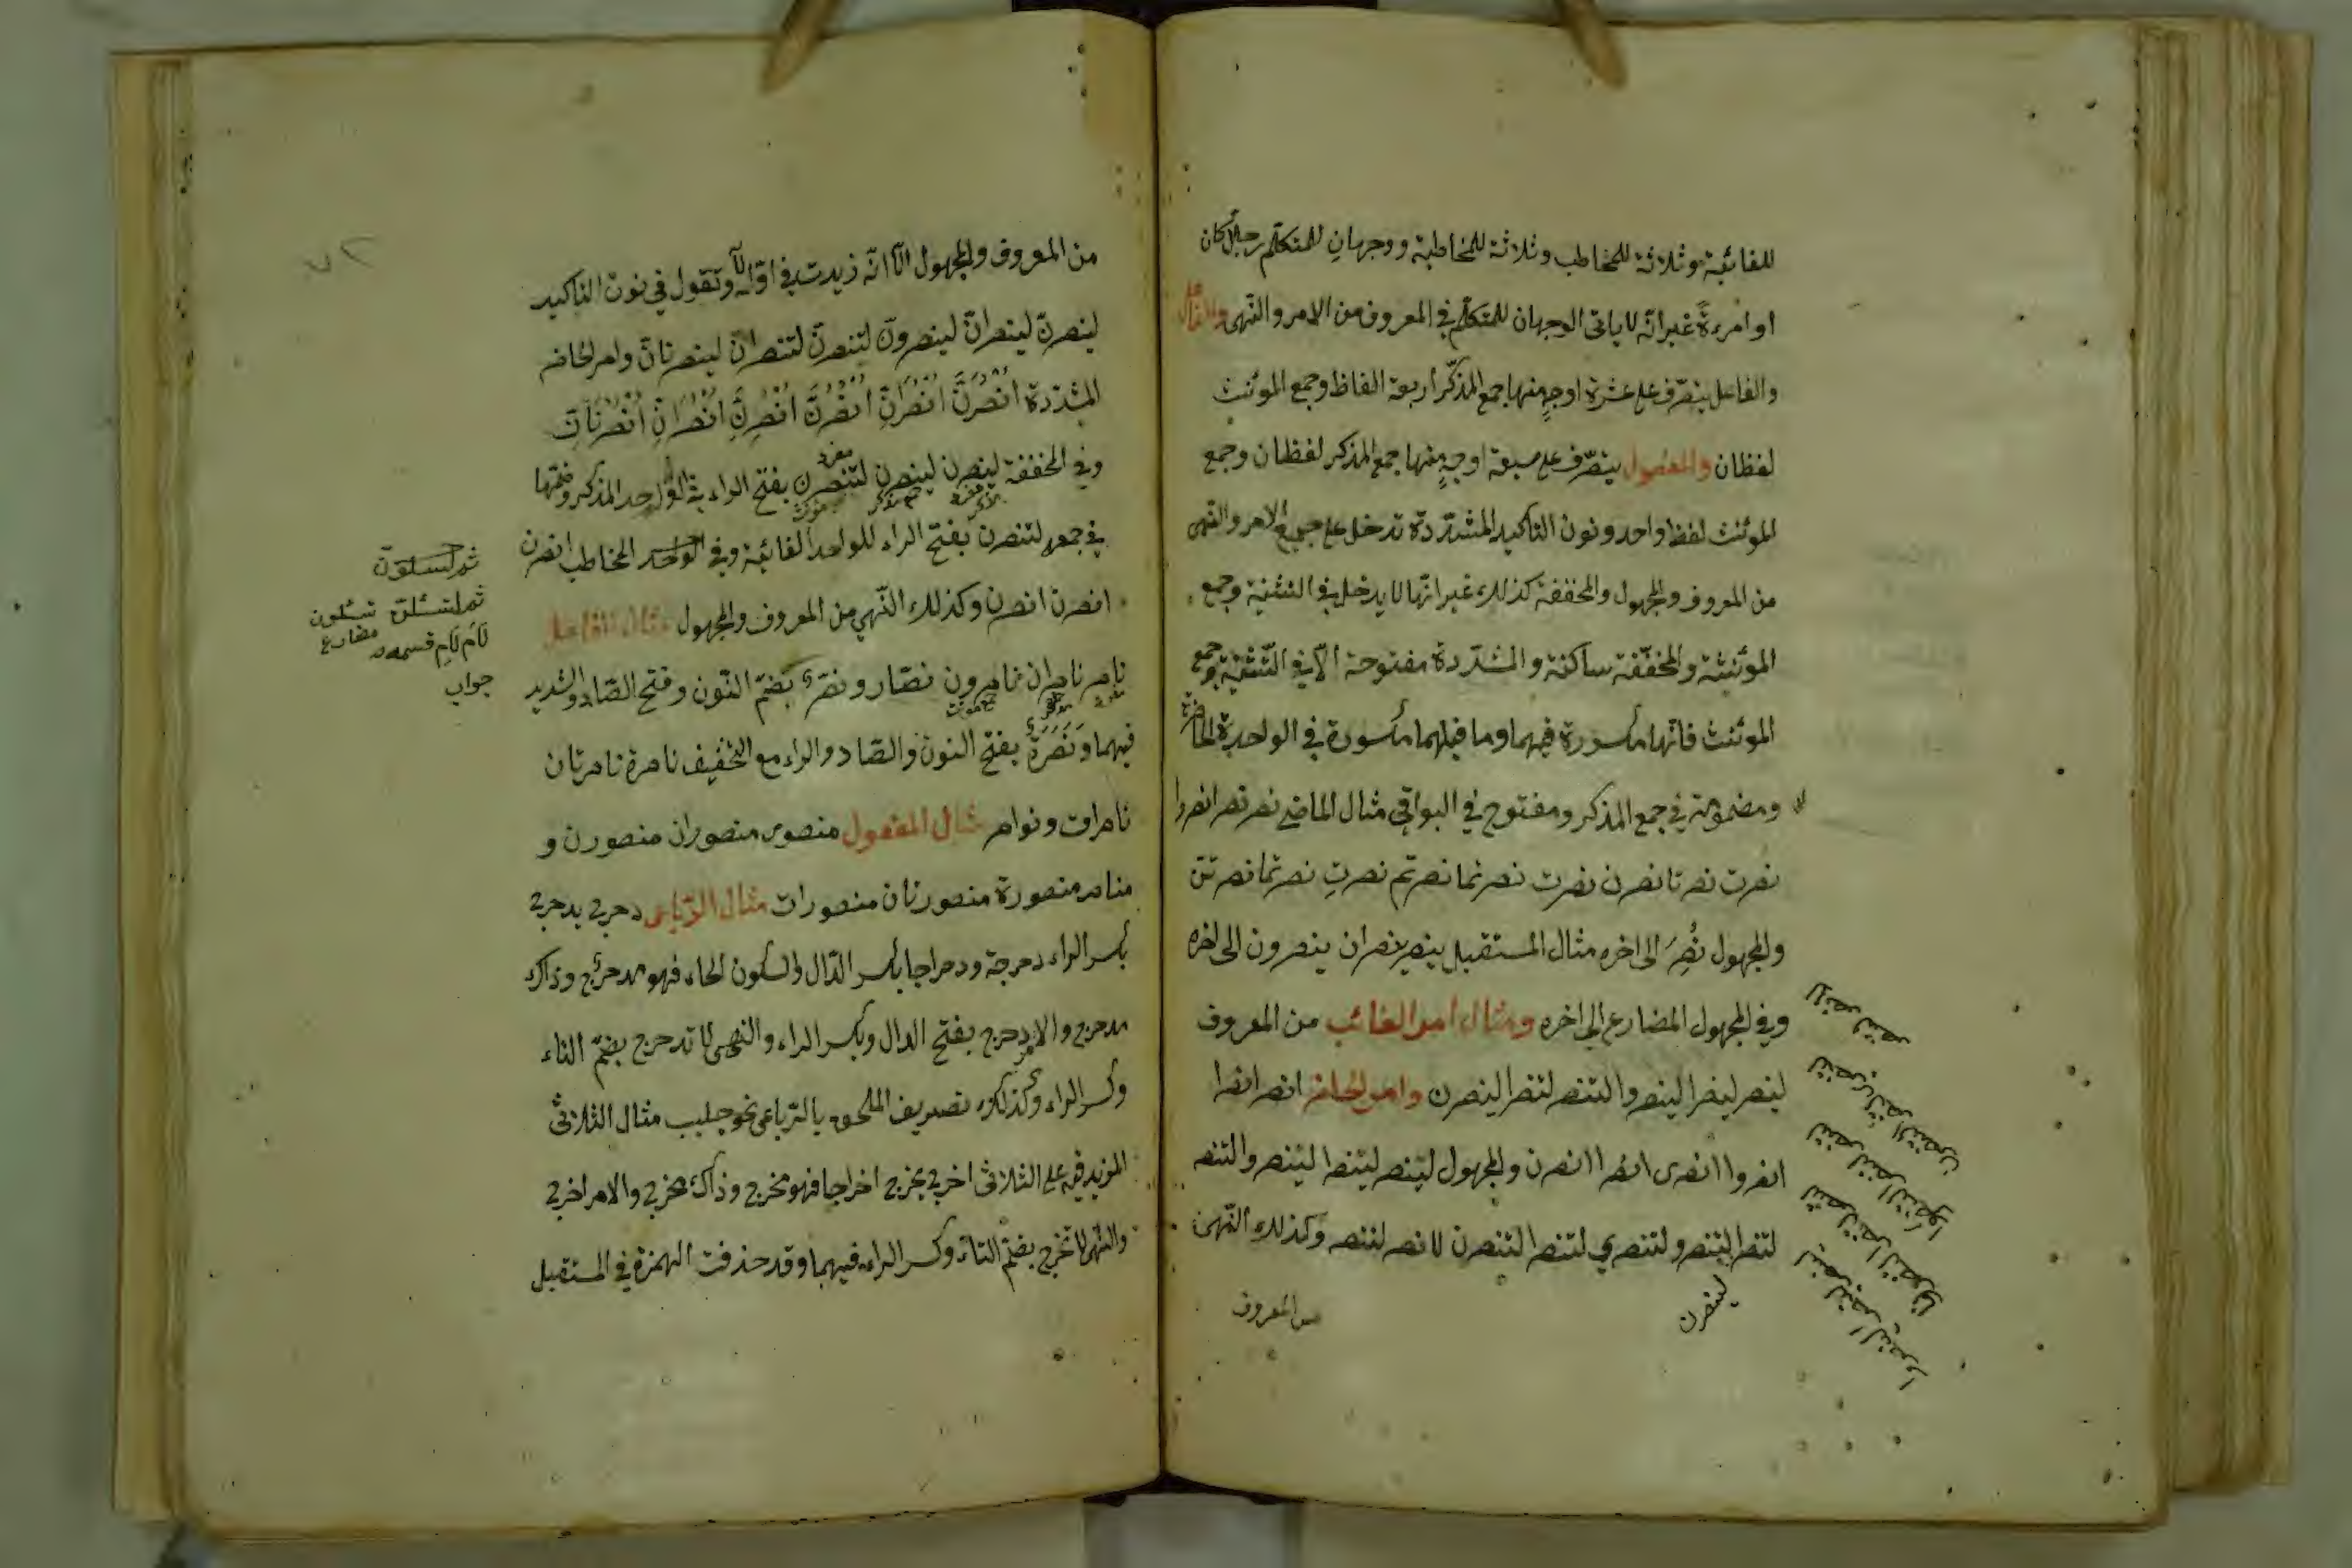 للغائبة وثلاثة للمخاطب وثلاثة للمخاطبة ووجهان للمتكلم رجلا كان
او امرءة غير انه لا ياتى الوجهان للمتكلم في المعروف من الامر والنهى
والفاعل يتصرف على عشرة اوجه منها جمع المذكر اربعة الفاظ وجمع المونث
لفظان والمفعول يتصرف على سبعة اوجه منها جمع المذكر لفظان وجمع
المونث لفظ واحد ونون التاكيد المشددة تدخل على جميع الامر والنهى
من المعروف والمجهول والمخففة كذلك غير انها لا يدخل في التثنية وجمع
المونثة والمخففة ساكنة والمشددة مفتوحة الا في التثنية وجمع
المونث فانها مكسورة فيهما وما قبلهما مكسورة في الواحدة الحاضرة
ومضمومة في جمع المذكر ومفتوح في البواقى مثال الماضى نصر نصرا نصروا
نصرت نصرتا نصرن نصرت نصرتما نصرتم نصرتِ نصرتما نصرتن
والمجهول نُصِرَ الى اخره مثال المستقبل ينصر ينصران ينصرون الى اخره
وفي المجهول المضارع الى اخره ومثال امر الغائب من المعروف
لينصر لينصرا لينصروا لتنصر لتنصرا لينصرن وامر الحاضر انصر انصرا
انصروا انصرى انصرا انصرن والمجهول لينصر لينصرا لينصروا لتنصر
لتنصرا لتنصروا لتنصري لتنصرا لتنصرن لانصر لننصر وكذلك النهى
لينصرن
من المعروف
من المعروف والمجهول الا انه زيدت في اوله لا وتقول في نون التاكيد
لينصرنّ لينصرانّ لينصرونّ لتنصرنّ لتنصرانّ لينصرنانّ وامر الحاضر
المشددة اُنْصُرَنَّ اُنْصُرَانِّ اُنْصُرُنَّ اُنْصُرِنَّ اُنْصُرَانِّ اُنْصُرْنَانِّ
وفي المخففة لينصرن لينصرن لتنصرن بفتح الراء في الواحد المذكر وضمها
في جمعه لتنصرن بفتح الراء للواحد الغائبة وفي الواحد المخاطب انصرن
انصرن انصرن وكذلك النهي من المعروف والمجهول مثال الفاعل
ناصر ناصران ناصرون نصّار ونصّر بضمّ النّون وفتح الصّاد والتشديد
فيهما وَنَصَرَة بفتح النون والصّاد والراء مع التخفيف ناصرة ناصرتان
ناصرات ونواصر مثال المفعول منصور منصوران منصورن و
مناصر منصورة منصورتان منصورات مثال الرّباعى دحرج يدحرج
بكسر الراء دحرجة ودحراجا بكسر الدّال والسكون الحاء فهو مدحرج وذاك
مدحرج والامر دحرج بفتح الدال وبكسر الراء والنهى لا تدحرج بضمّ التاء
وكسر الراء وكذلك تصريف الملحق بالرّباعى نحو جلبب مثال الثلاثى
المزيد فيه على الثلاثى اخرج يخرج اخراجا فهو مخرج وذاك مخرج والامر اخرج
والنهى لا تخرج بضمّ التاء وكسر الراء فيهما وقد حذفت الهمزة في المستقبل
جواب